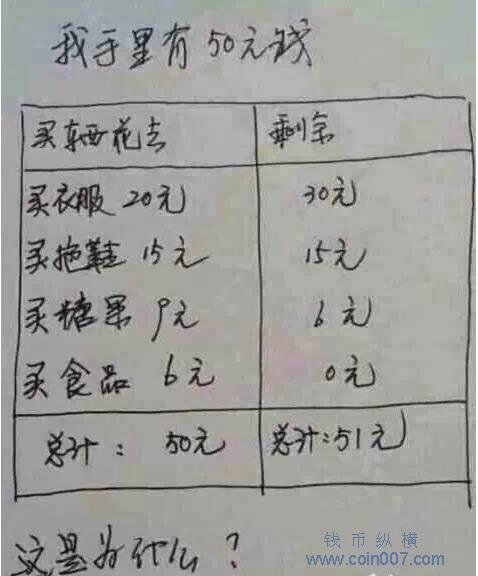 我手里有50元钱
买东西花去 剩余
买衣服 20元 30元
买拖鞋 15元 15元
买糖果 9元 6元
买食品 6元 0元
总计: 50元 总计:51元
这是为什么?
钱币纵横
www.coin007.com